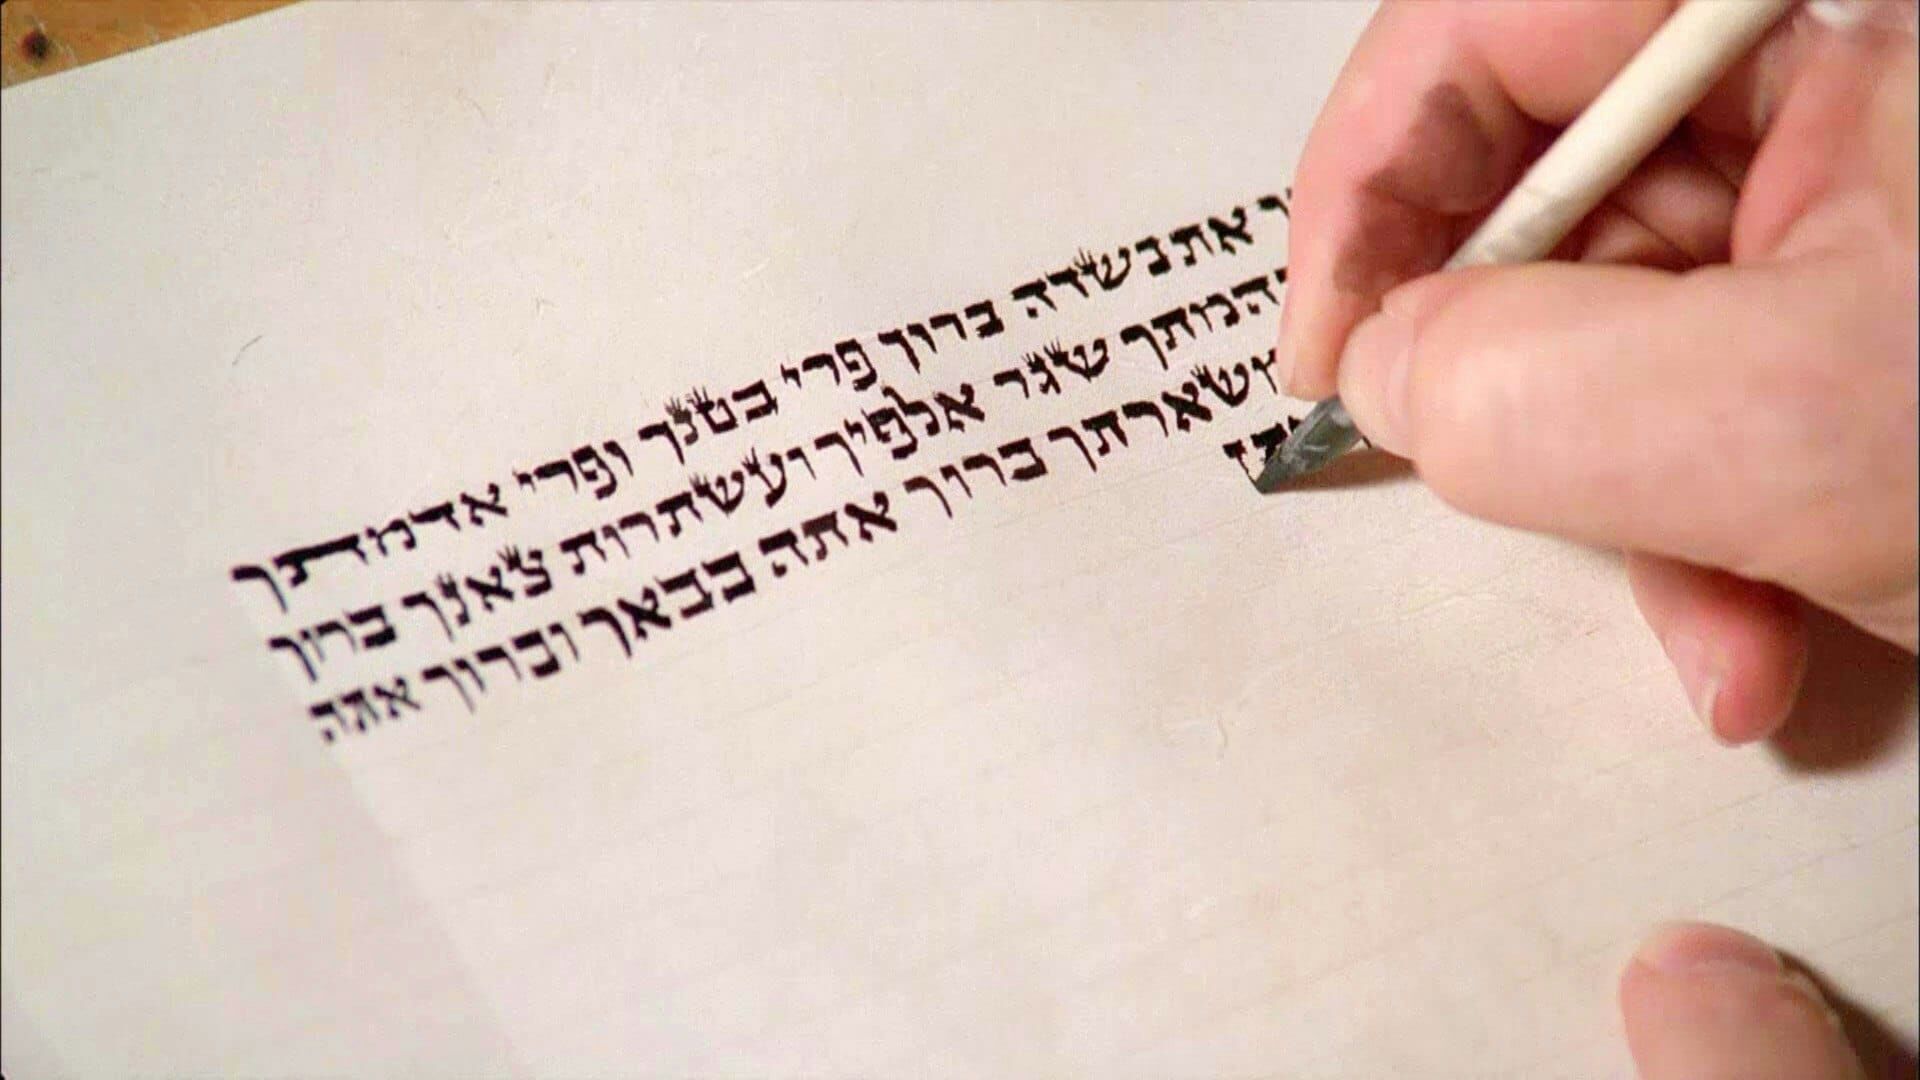 את בשדה ברוך פרי בטנך ופרי אדמתך
המתך שגר אלפיך ועשתרות צאנך ברוך
משארתך ברוך אתה בבאך וברוך אתה